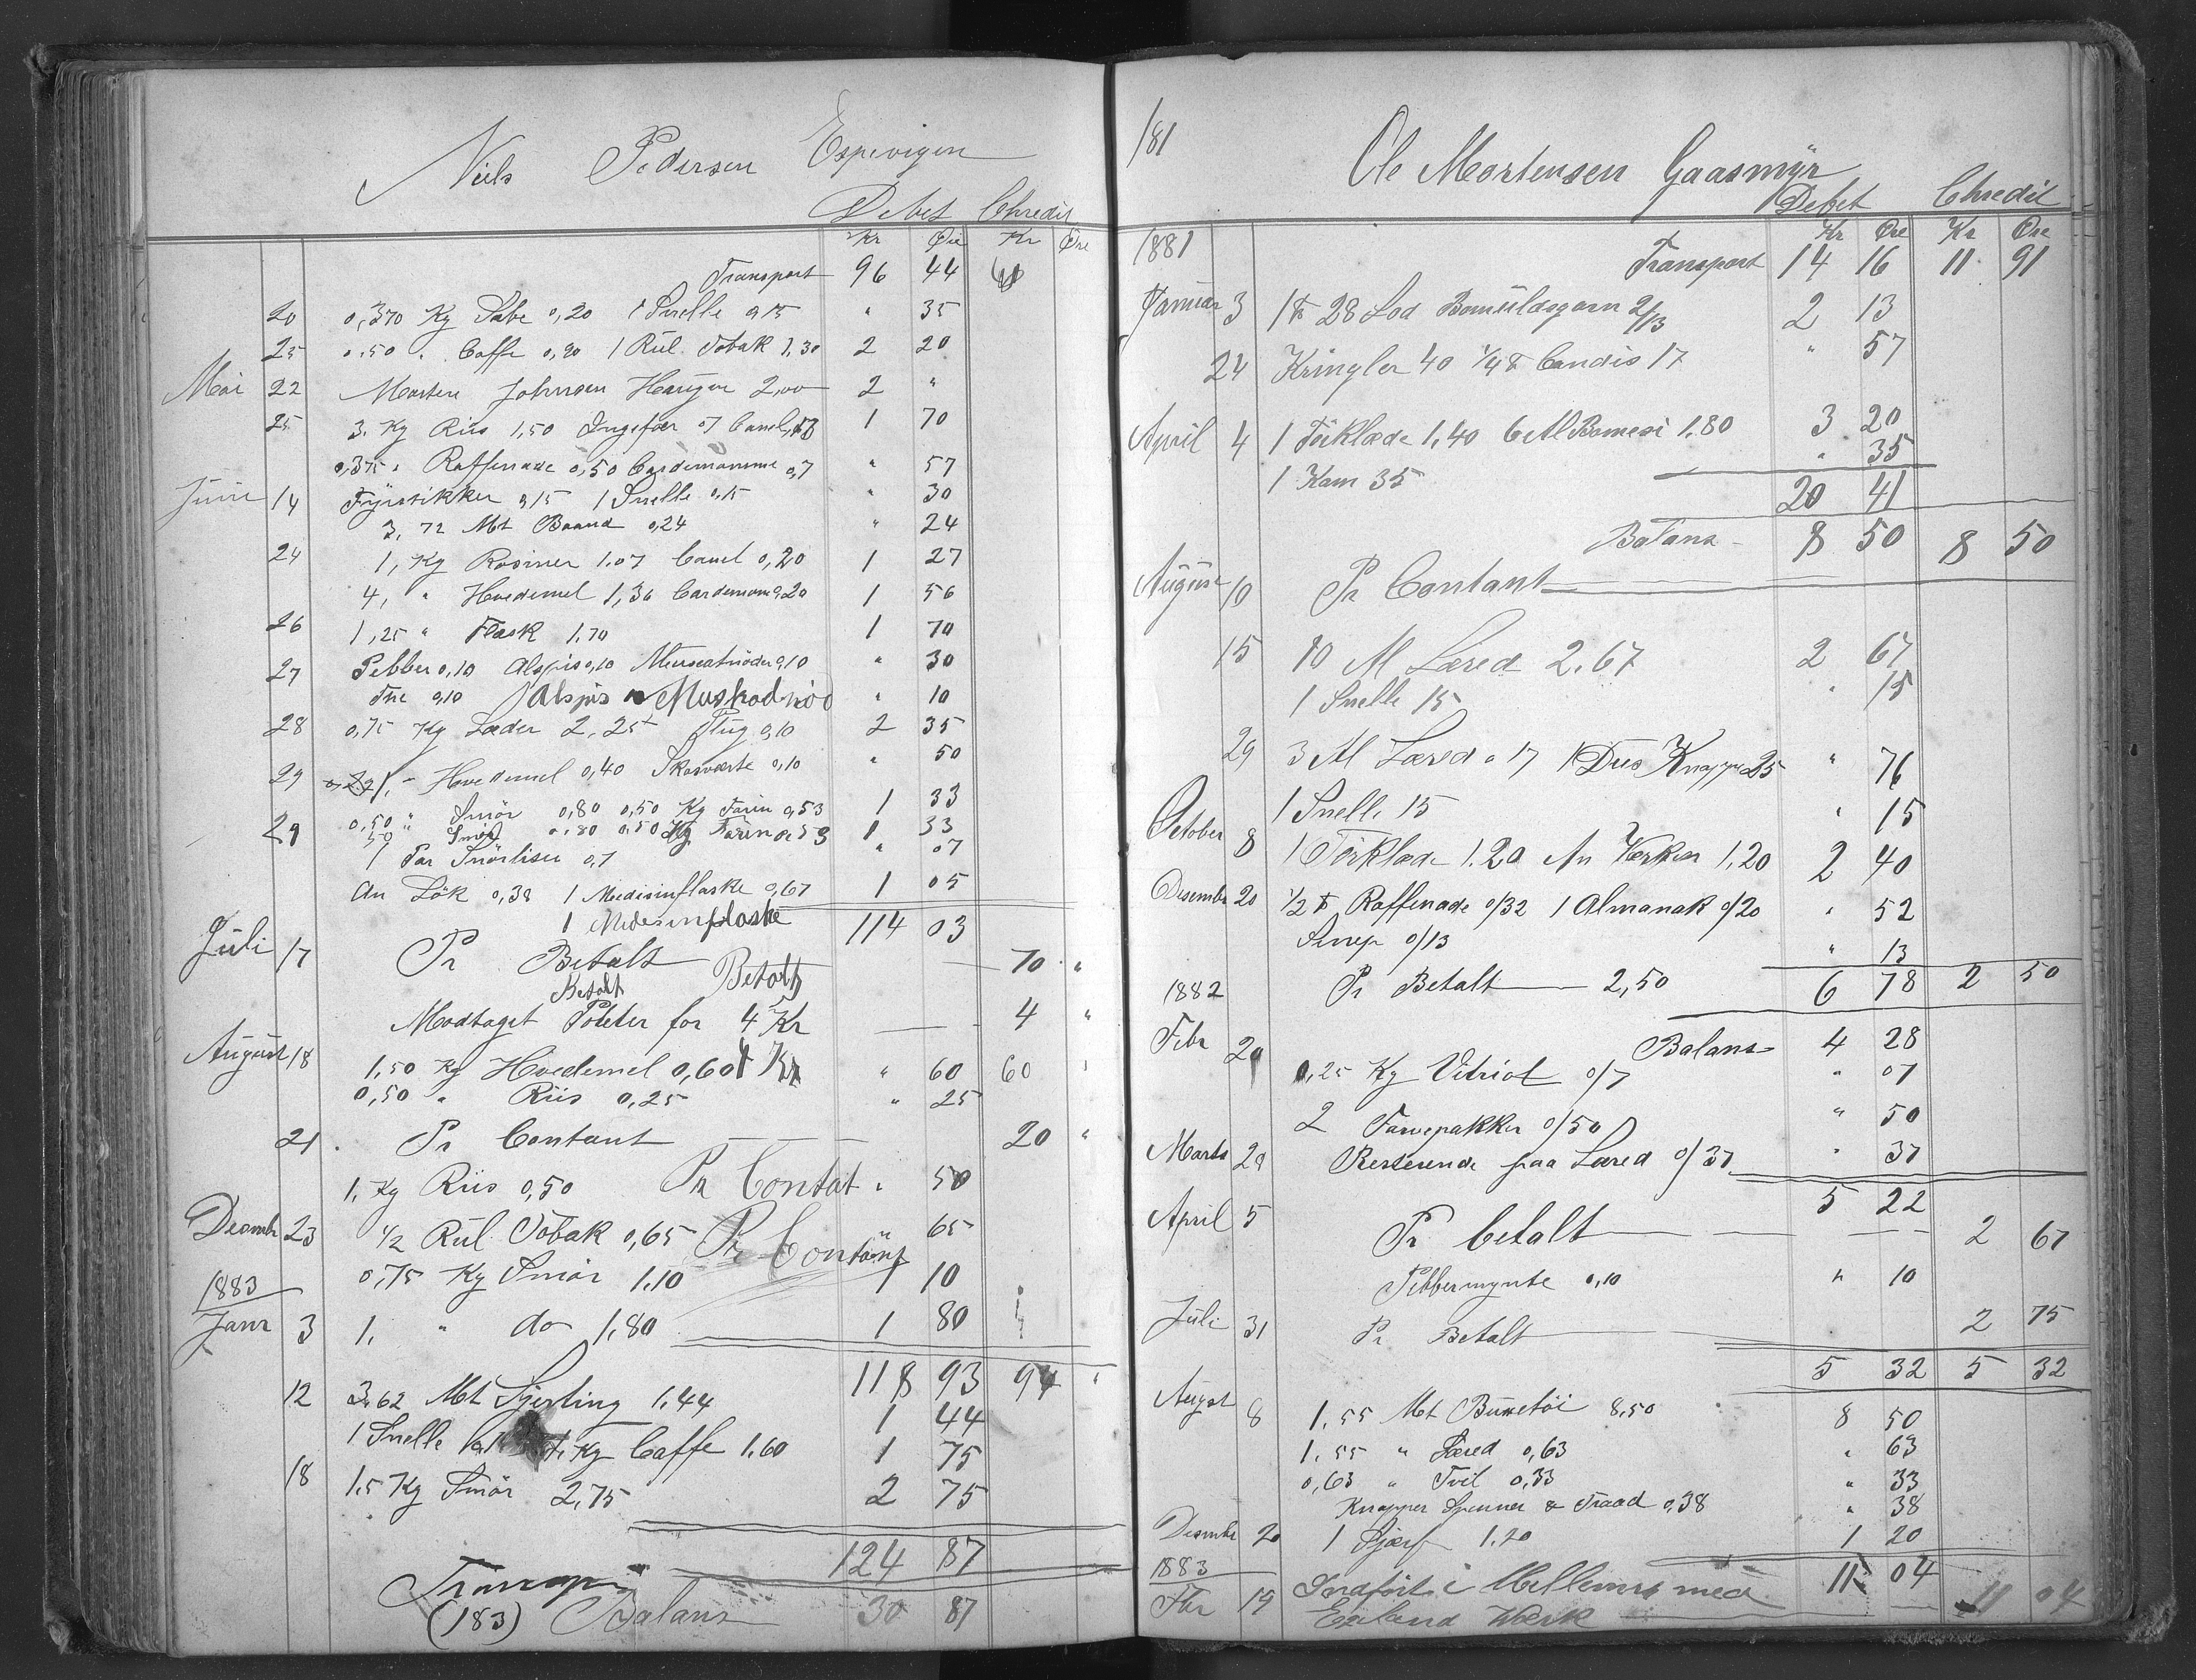 Niels Pedersen Espevigen
Debet Chredit
Kr Øre Kr Øre
Transport 96 44
20 0,370 Kg Sæbe 0,20 1 Snelle 0,15 " 35
25 0,50 " Caffe 0,90 1 Rul. Tobak 1,30 2 20
Mai 22 Morten Johnsen Haugen 2,00 2 "
25 3. Kg Riis 1,50 Ingefær 07 Canel, 13 1 70
0,375 " Raffenade 0,50 Cardemomme 0,7 " 57
Juni 14 Fyrstikker 0,15 1 Snelle 0,15 " 30
3,72 Mt Baand 0,24 " 24
24 1, Kg Rosiner 1.07 Canel 0,20 1 27
4, " Hvedemel 1,36 Cardemom 0,20 1 56
26 1,25 " Flæsk 1.70 1 70
27 Pebber 0,10 Alspis 0,10 Muscatnöder 0,10 " 30
The 0,10 Alspis Muskadnöd " 10
28 0,75 Kg Læder 2,25 Plug 0,10 2 35
29 1, " Hvedemel 0,40 Skosværte 0,10 " 50
0,50 " Smör 0,80 0,50 Kg Farin 0,53 1 33
29 50 " Smör 0,80 0,50 Kg Farin 0,53 1 33
1 Par Snörliser 0,7 " 07
An Lök 0,38 1 Medisinflaske 0,67 1 05
1 Medesinflaske 114 03
Juli 17 Pr Betalt Betalt 70 "
Betalt
Modtaget Poteter for 4 Kr 4 "
August 18 1,50 Kg Hvedemel 0,60 4 Kr " 60 60
0,50 " Riis 0,25 " 25
21 Pr Contant 20 "
1, Kg Riis 0,50 Pr Contat " 50
Desembr 23 1/2 Rul Tobak 0,65 Pr Contant " 65
1883 0,75 Kg Smör 1.10 1 10
Janr 3 1. " do 1,80 1 80
118 93 94 "
12 3,62 Mt Sjerting 1.44 1 44
1 Snelle 1. Kg Caffe 1.60 1 75
18 1.5 Kg Smör 2,75 2 75
124 87
Transp
(183) Balans 30 87
181
Ole Mortensen Gaasmyr
Debet Chredit
Kr Øre Kr Øre
1881 Transport 14 16 11 91
Januar 3 1 ℔ 28 Lod Bomuldsgarn 2/13 2 13
24 Kringler 40 1/4 ℔ Candis 17 " 57
April 4 1 Törklæde 1,40 6 Al Bomesi 1.80 3 20
1 Kam 35 " 35
20 41
Balans 8 50 8 50
August 10 Pr Contant
15 10 Al Læred 2.67 2 67
1 Snelle 15 " 15
29 3 Al Læred a 17 1 Dus Knapper 25 " 76
1 Snelle 15 " 15
October 8 1 Törklæde 1.20 An Verken 1,20 2 40
Desembr 20 1/2 ℔ Raffenade 0/32 1 Almanak 0/20 " 52
Senep 0/13 " 13
1882 Pr Betalt 2,50 6 78 2 50
Febr Balans 4 28
20 0,25 Kg Vitriol 0/7 " 07
2 Farvepakker 0/50 " 50
Marts 29 Resterende paa Læred 0/37 " 37
5 22
April 5 Pr betalt 2 67
Pebbermynte 0,10 " 10
Juli 31 Pr Betalt 2 75
5 32 5 32
August 8 1.55 Mt Buxetöi 8,50 8 50
1.55 " Læred 0,63 " 63
0,63 " Tvil 0,33 " 33
Knapper Spenner & Traad 0,38 " 38
Desembr 20 1 Sjærf 1.20 1 20
1883 11 04
Fbr 19 Indfört i Mellemr med 11 04
Egeland Værk